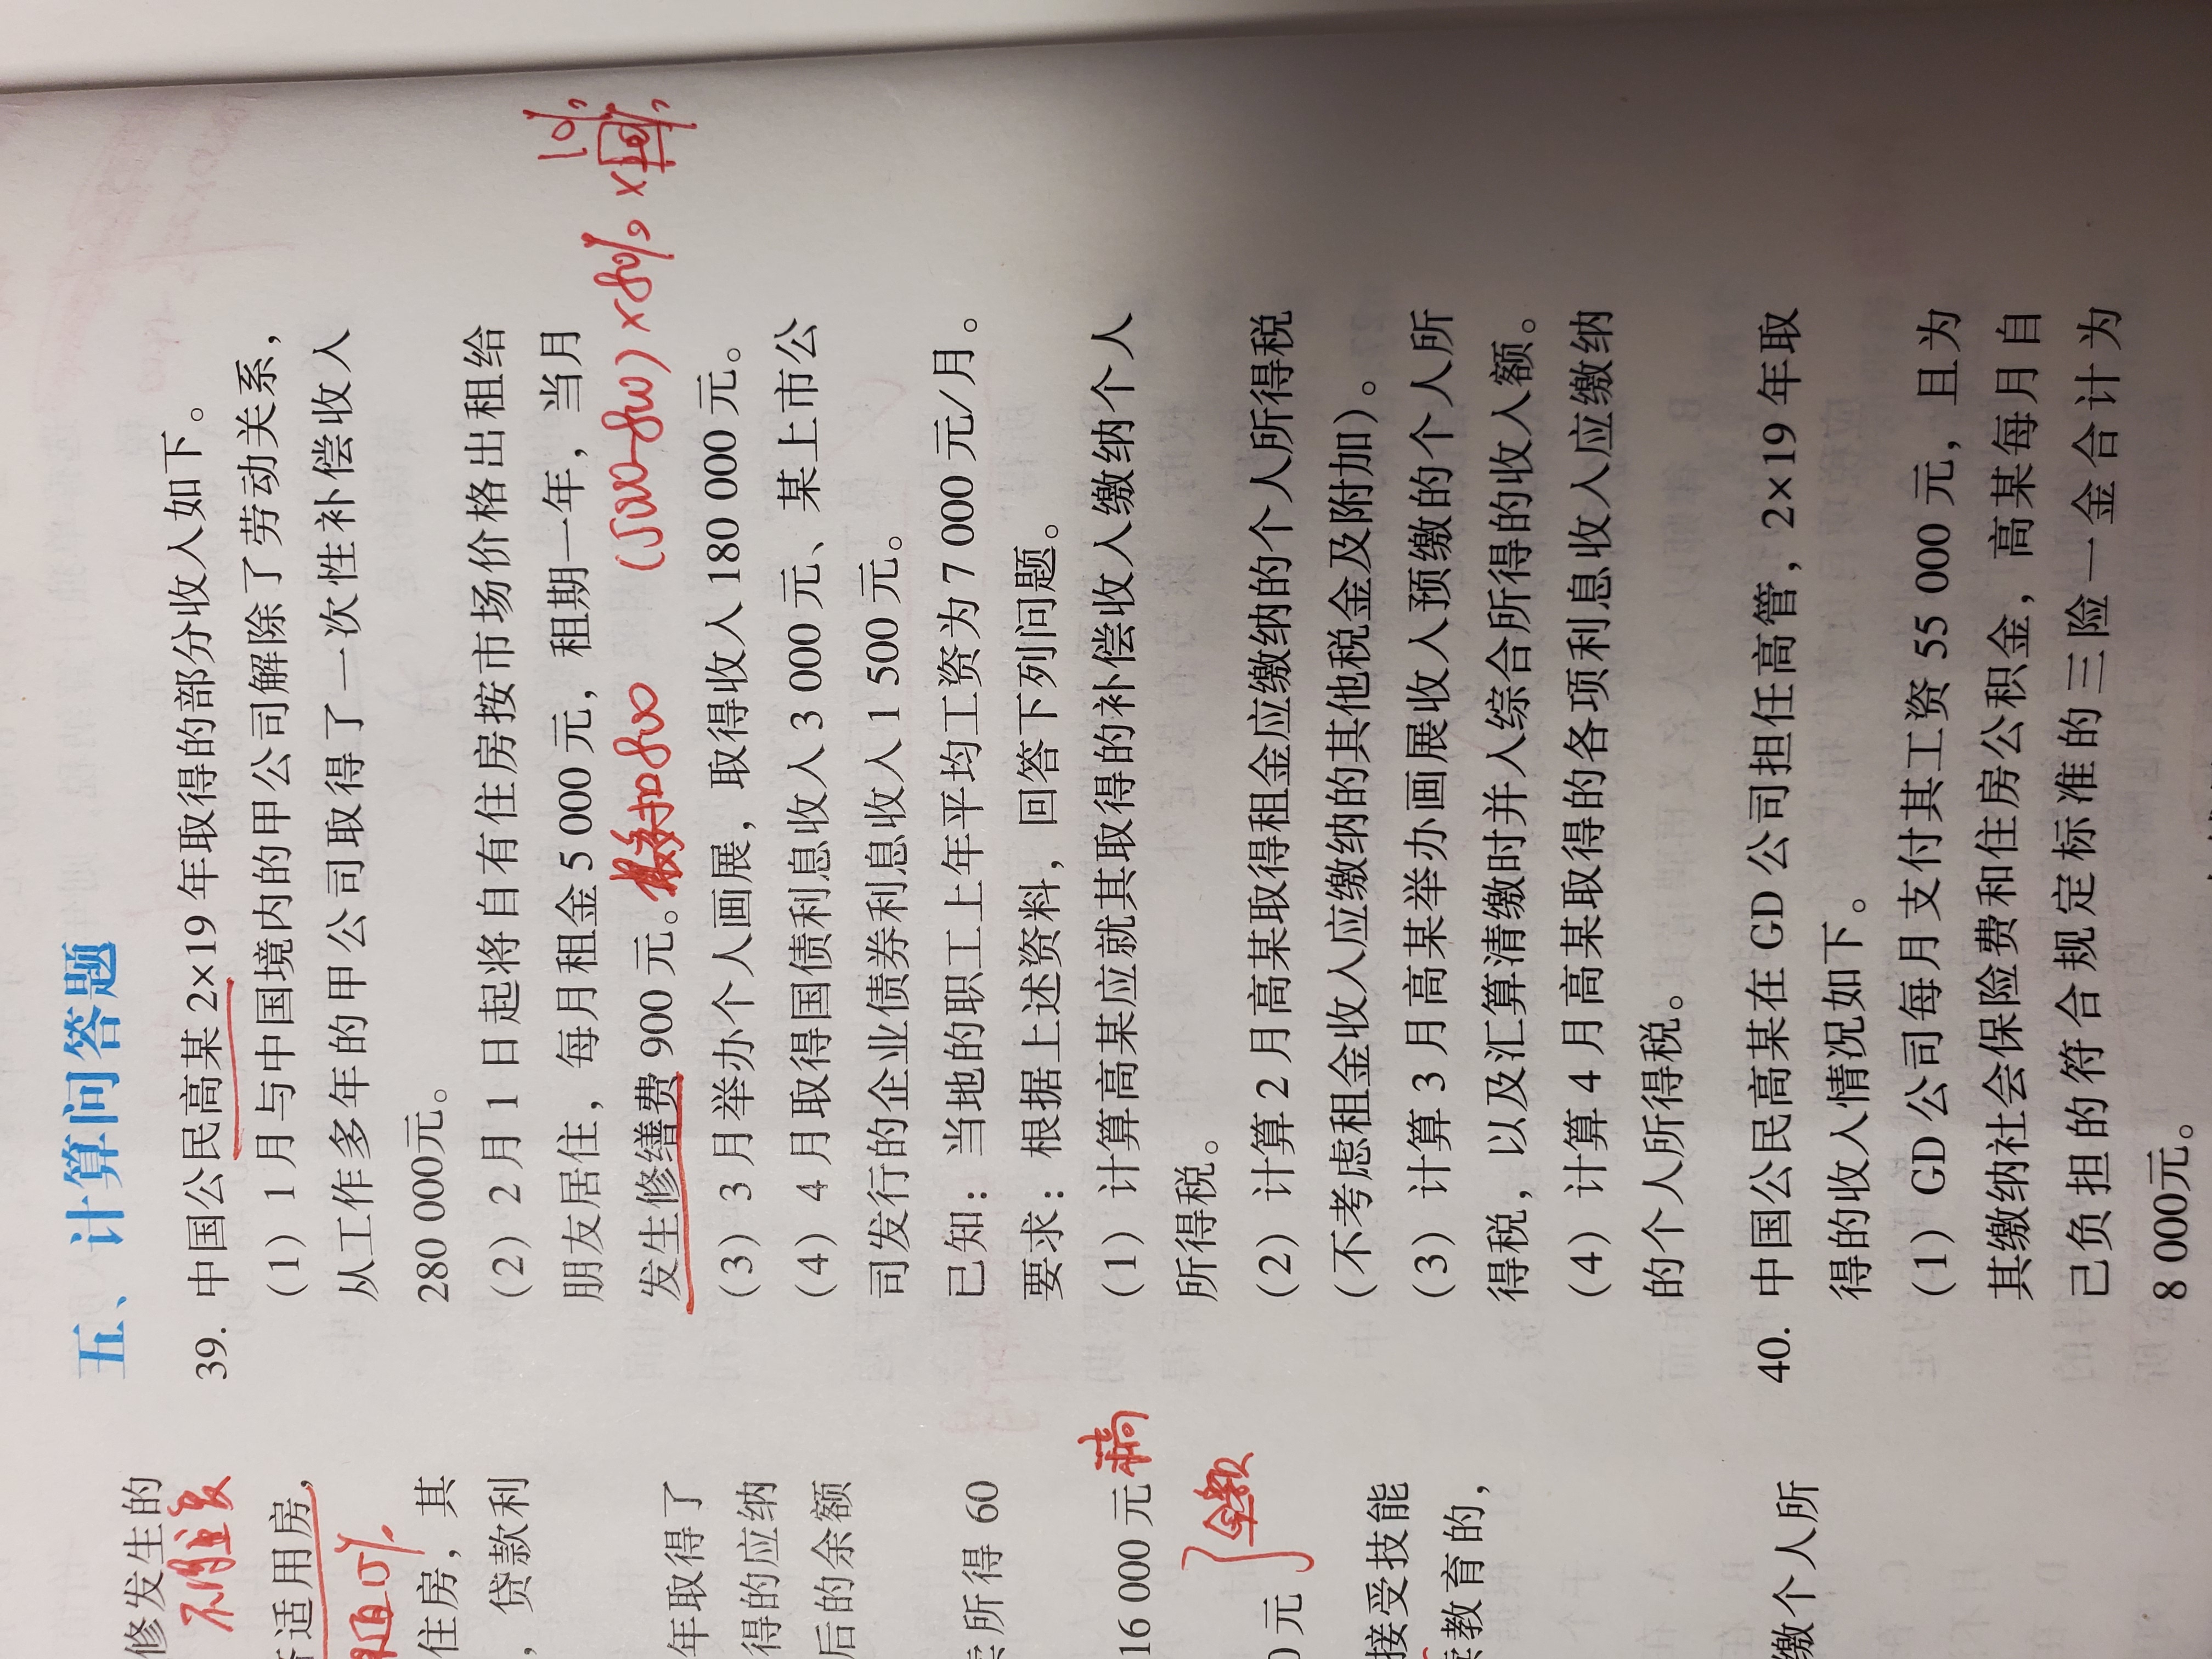 修发生的
不用交
适用房，
租10%
住房，其
，贷款利
年取得了
得的应纳
后的余额
卖所得 60
16 000 元 稿
0 元
接受技能
教育的，
缴个人所
五、计算问答题
39. 中国公民高某 2×19 年取得的部分收入如下。
（1）1 月与中国境内的甲公司解除了劳动关系，
从工作多年的甲公司取得了一次性补偿收入
280 000元。
（2）2 月 1 日起将自有住房按市场价格出租给
朋友居住，每月租金 5 000 元，租期一年，当月
10%
发生修缮费 900 元。最多扣800 (5000-800)×80%×10%
（3）3 月举办个人画展，取得收入 180 000 元。
（4）4 月取得国债利息收入 3 000 元、某上市公
司发行的企业债券利息收入 1 500 元。
已知：当地的职工上年平均工资为 7 000 元/月。
要求：根据上述资料，回答下列问题。
（1）计算高某应就其取得的补偿收入缴纳个人
所得税。
（2）计算 2 月高某取得租金应缴纳的个人所得税
（不考虑租金收入应缴纳的其他税金及附加）。
（3）计算 3 月高某举办画展收入预缴的个人所
得税，以及汇算清缴时并入综合所得的收入额。
（4）计算 4 月高某取得的各项利息收入应缴纳
的个人所得税。
40. 中国公民高某在 GD 公司担任高管，2×19 年取
得的收入情况如下。
（1）GD 公司每月支付其工资 55 000 元，且为
其缴纳社会保险费和住房公积金，高某每月自
己负担的符合规定标准的三险一金合计为
8 000元。